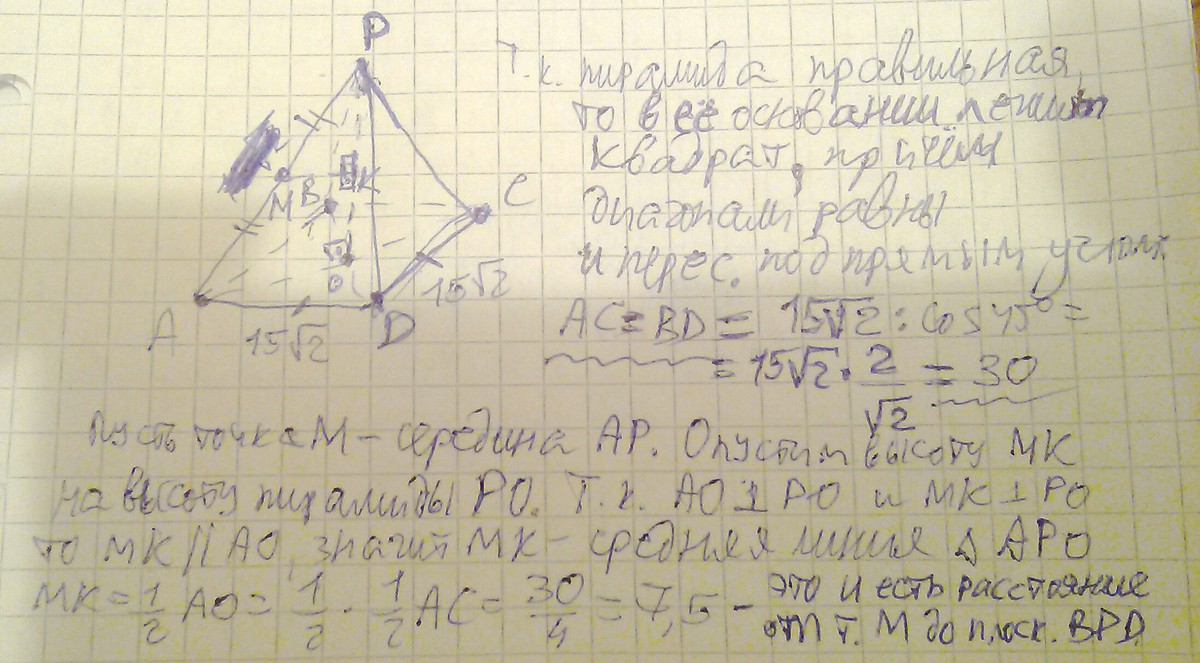 P
M
B
K
C
O
A
D
15√2
15√2
Т.к. пирамида правильная,
то в её основании лежит
квадрат, причём
диагонали равны
и перес. под прямым углом.
AC = BD = 15√2 : cos 45° =
= 15√2 · 2/√2 = 30
Пусть точка M – середина AP. Опустим высоту MK
на высоту пирамиды PO. Т.к. AO ⊥ PO и MK ⊥ PO
то MK || AO, значит MK – средняя линия Δ APO
MK = 1/2 AO = 1/2 · 1/2 AC = 30/4 = 7,5 – это и есть расстояние
от т. M до плоск. BPD.